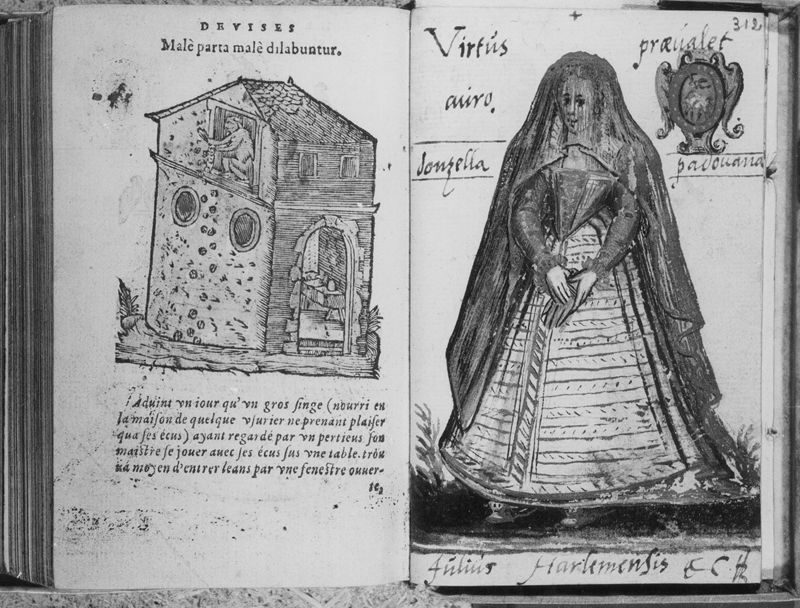 DEVISES
Malè parta malè dilabuntur.
Aduint vn iour qu'vn gros singe (nourri en
la maison de quelque vsurier ne prenant plaiser
qua ses écus) ayant regardé par vn pertieus son
maistre se jouer auec ses écus sus vne table. trou
ua moyen d'entrer leans par vne fenestre ouuer-
te,
312
Virtus præualet
auro.
donzella padouana
Julius Harlemensis & C